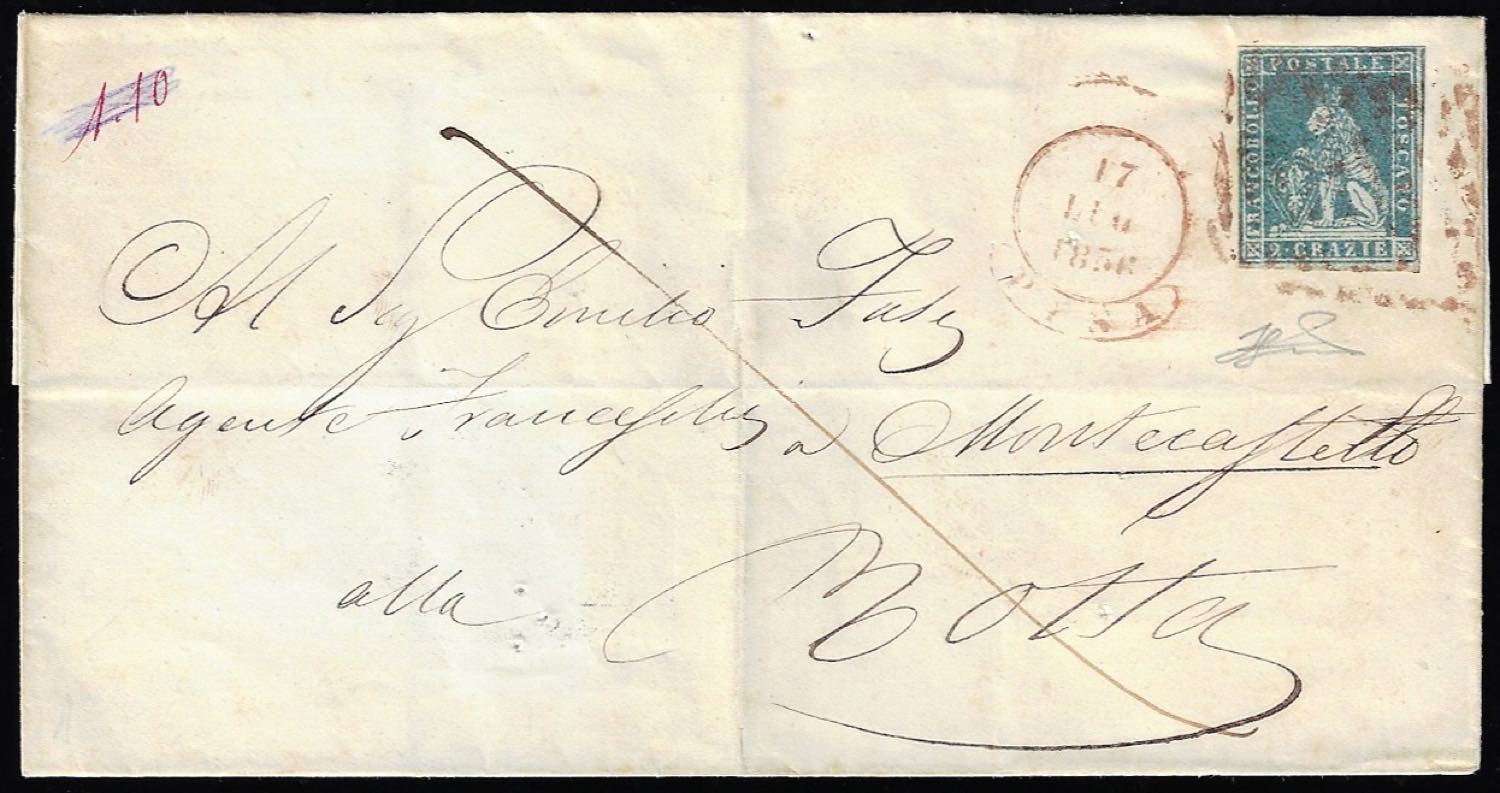 1.10
FRANCOBOLLO POSTALE TOSCANO
2·CRAZIE
17
LUG
1856
PISA
Al Sig Emilio
Agente a Montecastello
alla